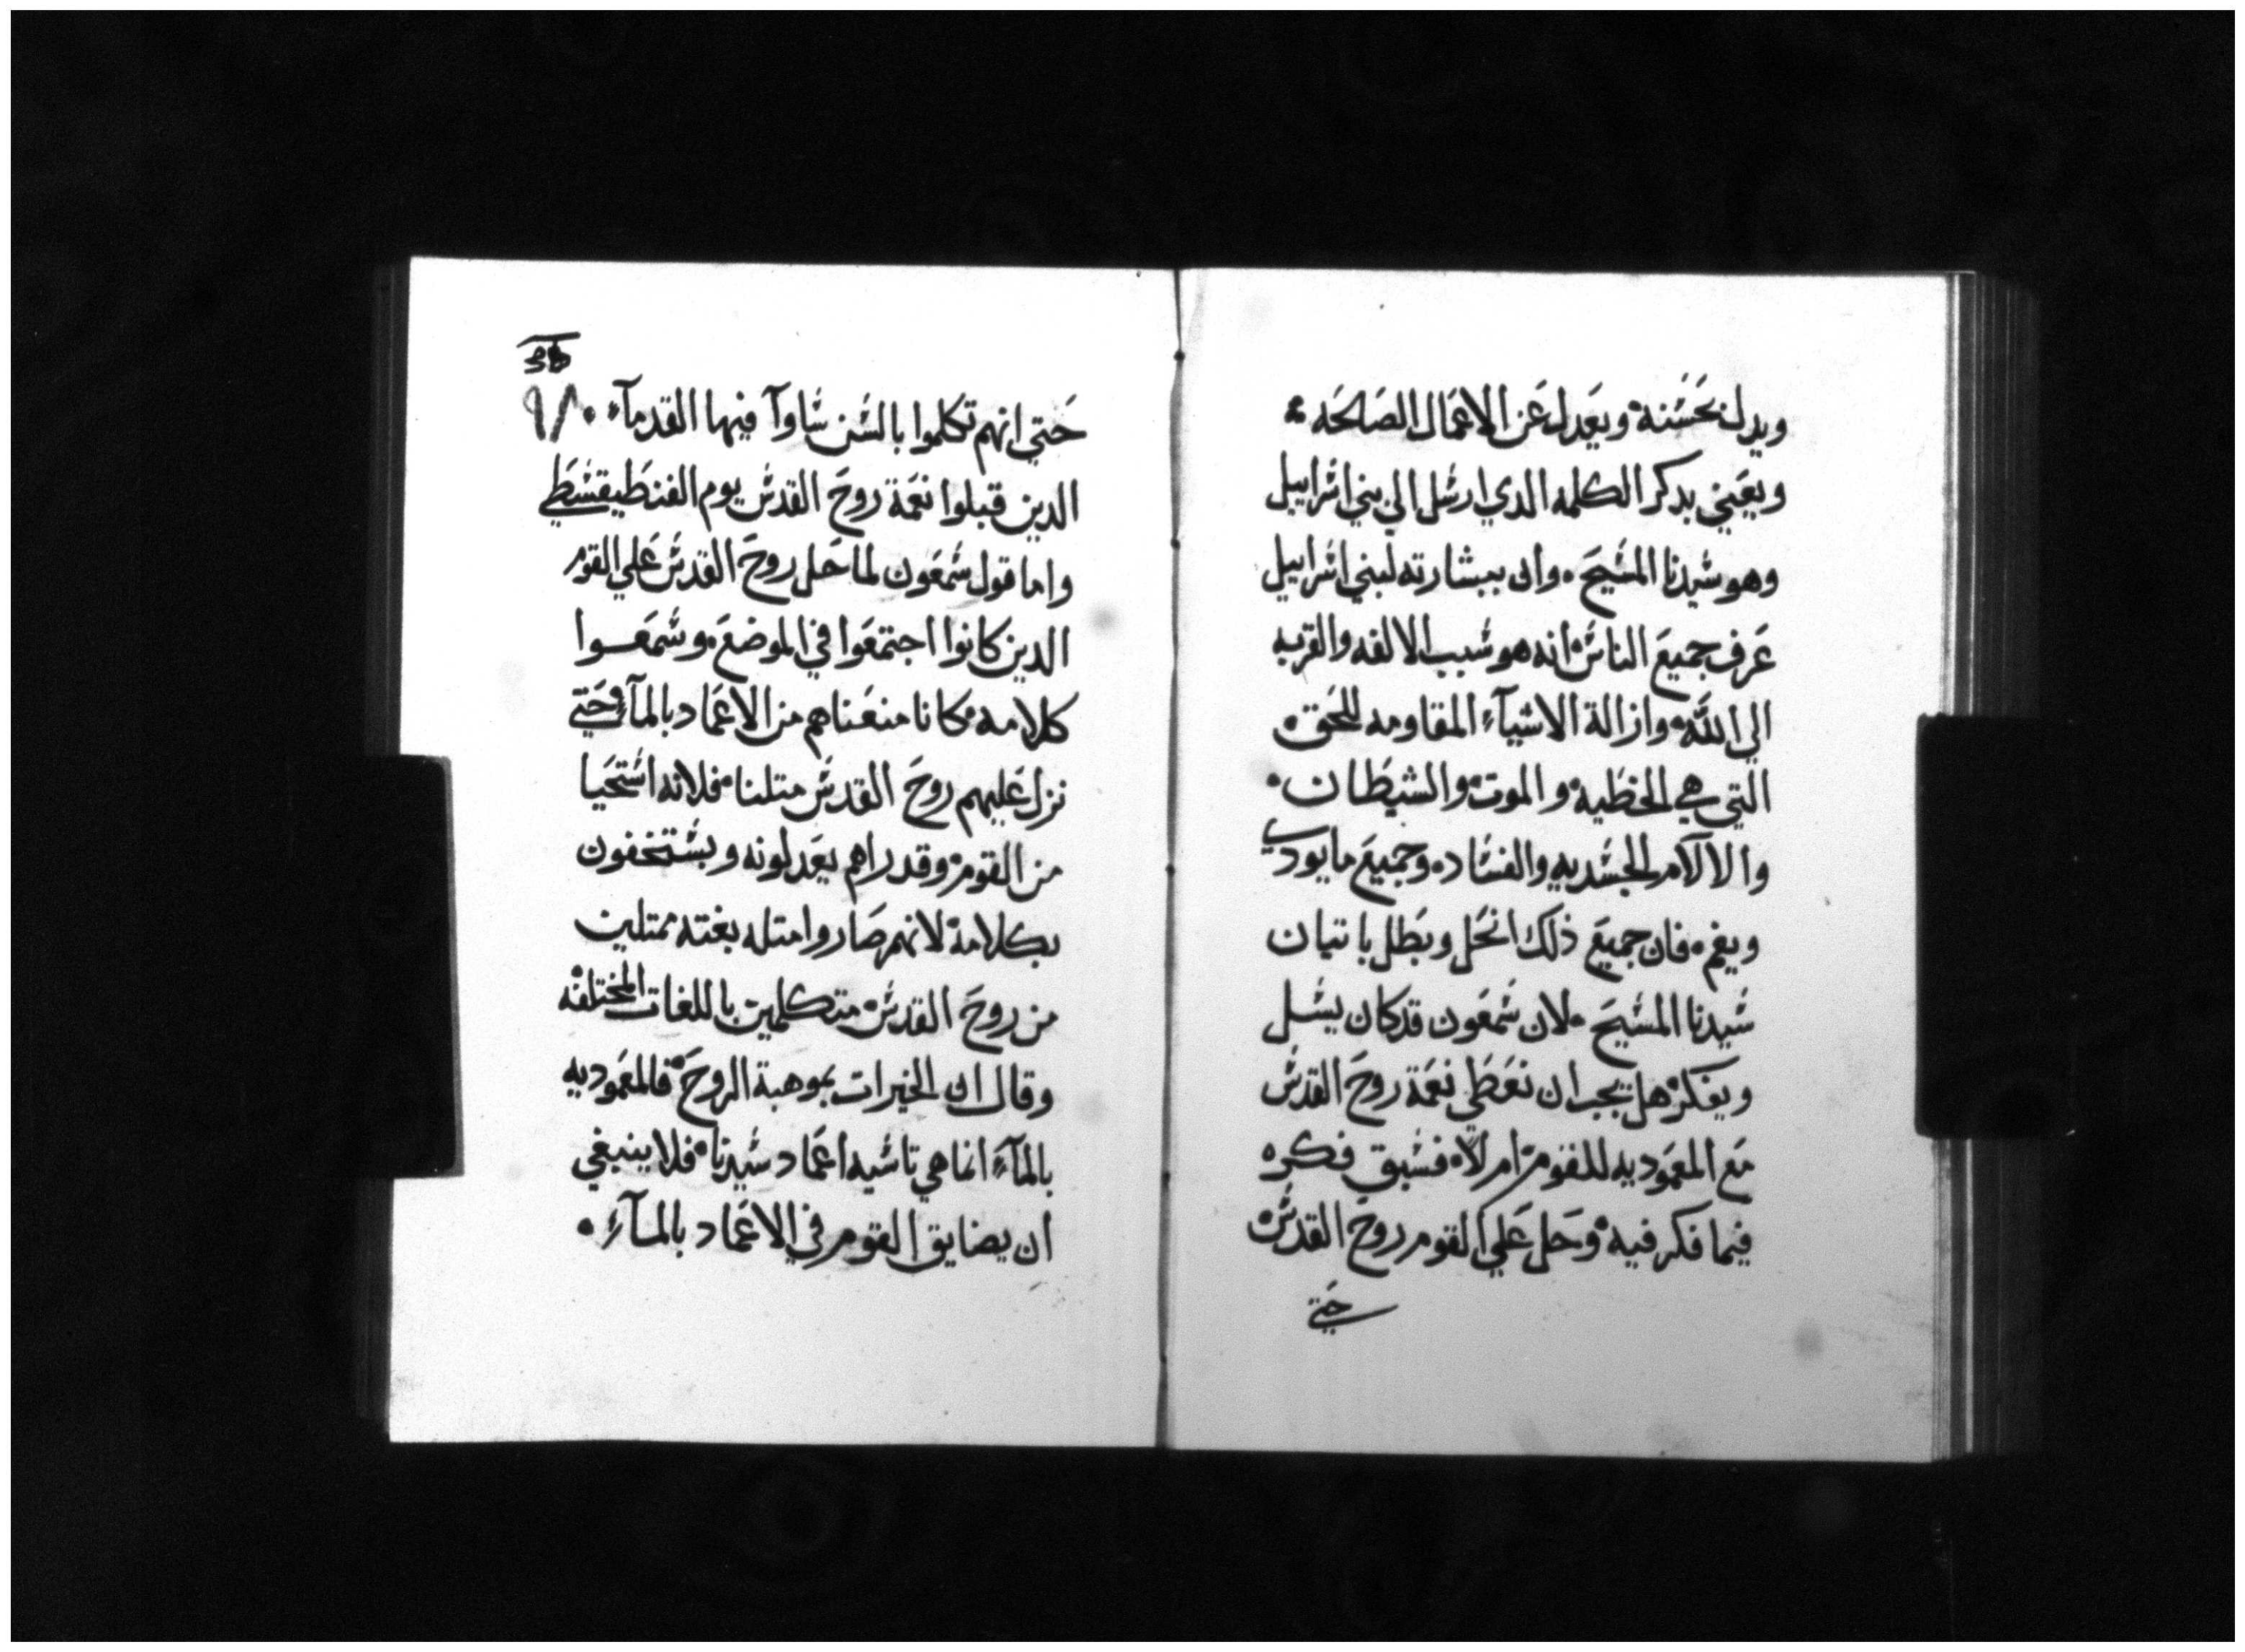 ويدل نحسنة ويعدل عن الاعمال الصالحه ؞
ويعيني بدكر الكلمه الدي ارسل الي بني اسراييل
وهو سيدنا المسيح ۰ وان ببشارته لبني اسراييل
عرف جميع الناس انه هو سبب الالفه والقربه
الي الله وازالة الاشيآء المقاومه للحق ۰
التي هي الخطيه والموت والشيطان ۰
والالآم الجسديه والفساد ۰ وجميع ما يودي
ويغم ۰ فان جميع ذلك انحل وبطل باتيان
سيدنا المسيح ۰ لان شمعون قد كان يسل
ويفكر هل يجب ان نعطي نعمة روح القدس
مع المعموديه للقوم ام لا ۰ فسبق فكره
فيما فكر فيه وحل علي القوم روح القدس
حتي
حتي انهم تكلموا بالسن ساوآ فيها القدمآء ۰
الدين قبلوا نعمة روح القدس يوم الفنطيقسطي
واما قول شمعون لما حل روح القدس علي القوم
الدين كانوا اجتمعوا في الموضع ۰ وسمعوا
كلامه ۰ كانا منعناهم من الاعماد بالمآء حتي
نزل عليهم روح القدس متلنا ۰ فلانه استحيا
من القوم وقد راهم يعدلونه ويستخفون
بكلامه لانهم صاروا متله بغته ممتلين
من روح القدس متكلمين باللغات المختلفه
وقال ان الخيرات بموهبة الروح ۰ فالمعموديه
بالمآء انما هي تاشيه اعماد سيدنا ۰ فلا ينبغي
ان يضايق القوم في الاعماد بالمآء ۰